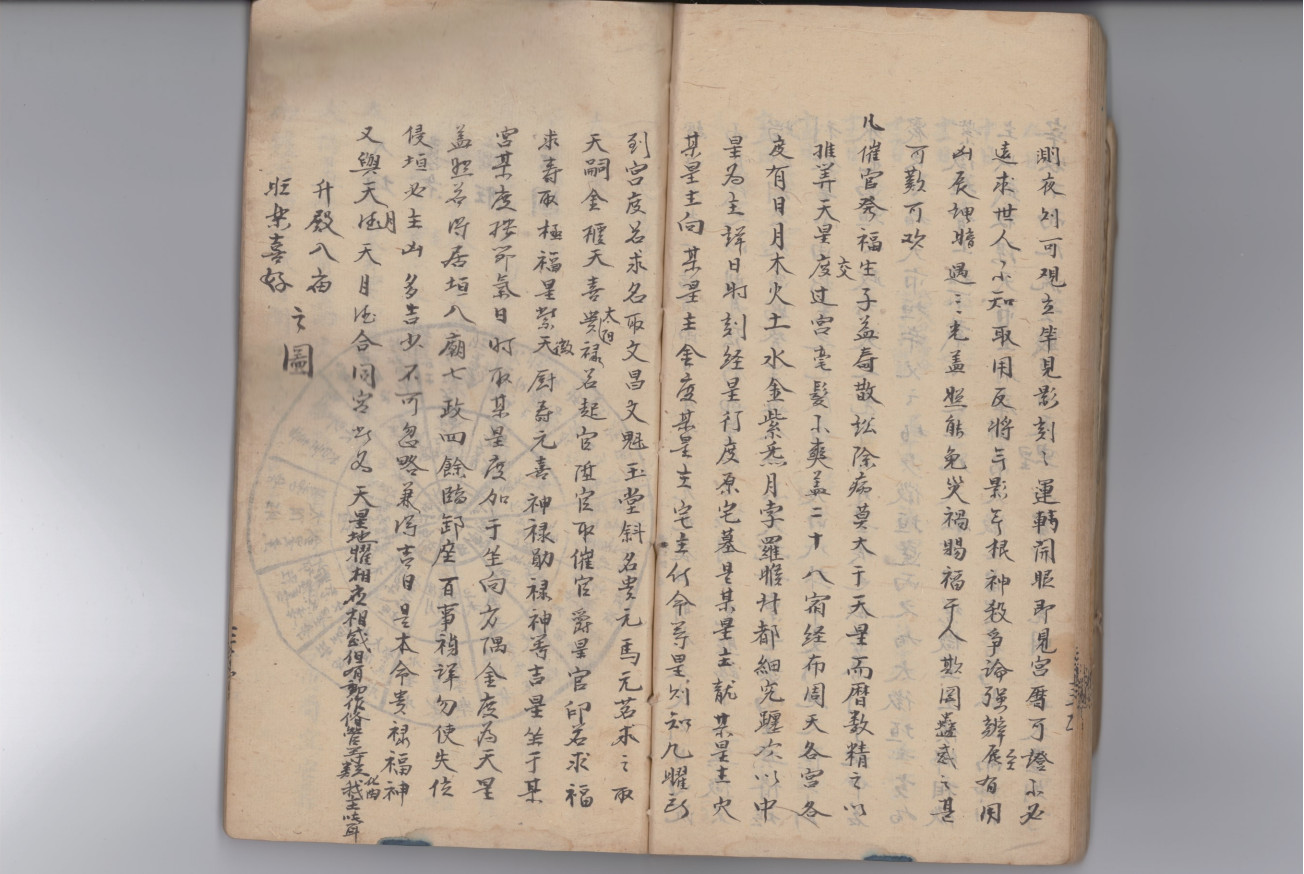 測夜則可观立竿見影刻〻運轉開眼即見宮曆可證不必
遠求世人不知取用反將年影年根神殺爭論强辨展有用
凶辰埋暗遇三光盖照能免災禍賜福于人欺罔蠱惑之甚
可歎可欢
凡催官発福生子益寿散訟除病莫大于天星而曆数精之以
推算天星交度过宮毫髮不爽盖二十八宿经布周天各宮各
度有日月木火土水金紫炁月孛羅睺计都細究躔次以中
星为主詳日时刻经星行度原宅墓是某星主龍某星主穴
某星主向某星主金度某星主宅主什命等星则知九曜所
到宮度若求名取文昌文魁玉堂斜名贵元馬元若求之取
天嗣金櫃天喜贵禄太阳若起官陞官取催官爵星官印若求福
求寿取極福星紫微天厨寿元喜神禄勛禄神等吉星坐于某
宮某度按節氣日时取某星度加于坐向方隅金度為天星
盖照若得居垣入廟七政四餘臨卸坐百事禎詳勿使失位
侵垣必主凶多吉少不可忽略兼泻吉日是本命贵禄福神
又與天德月天月德合同宮半为天星地曜相应相感但有动作修营等类我主化曲吱耳
升殿入庙
旺樂喜好
之圖